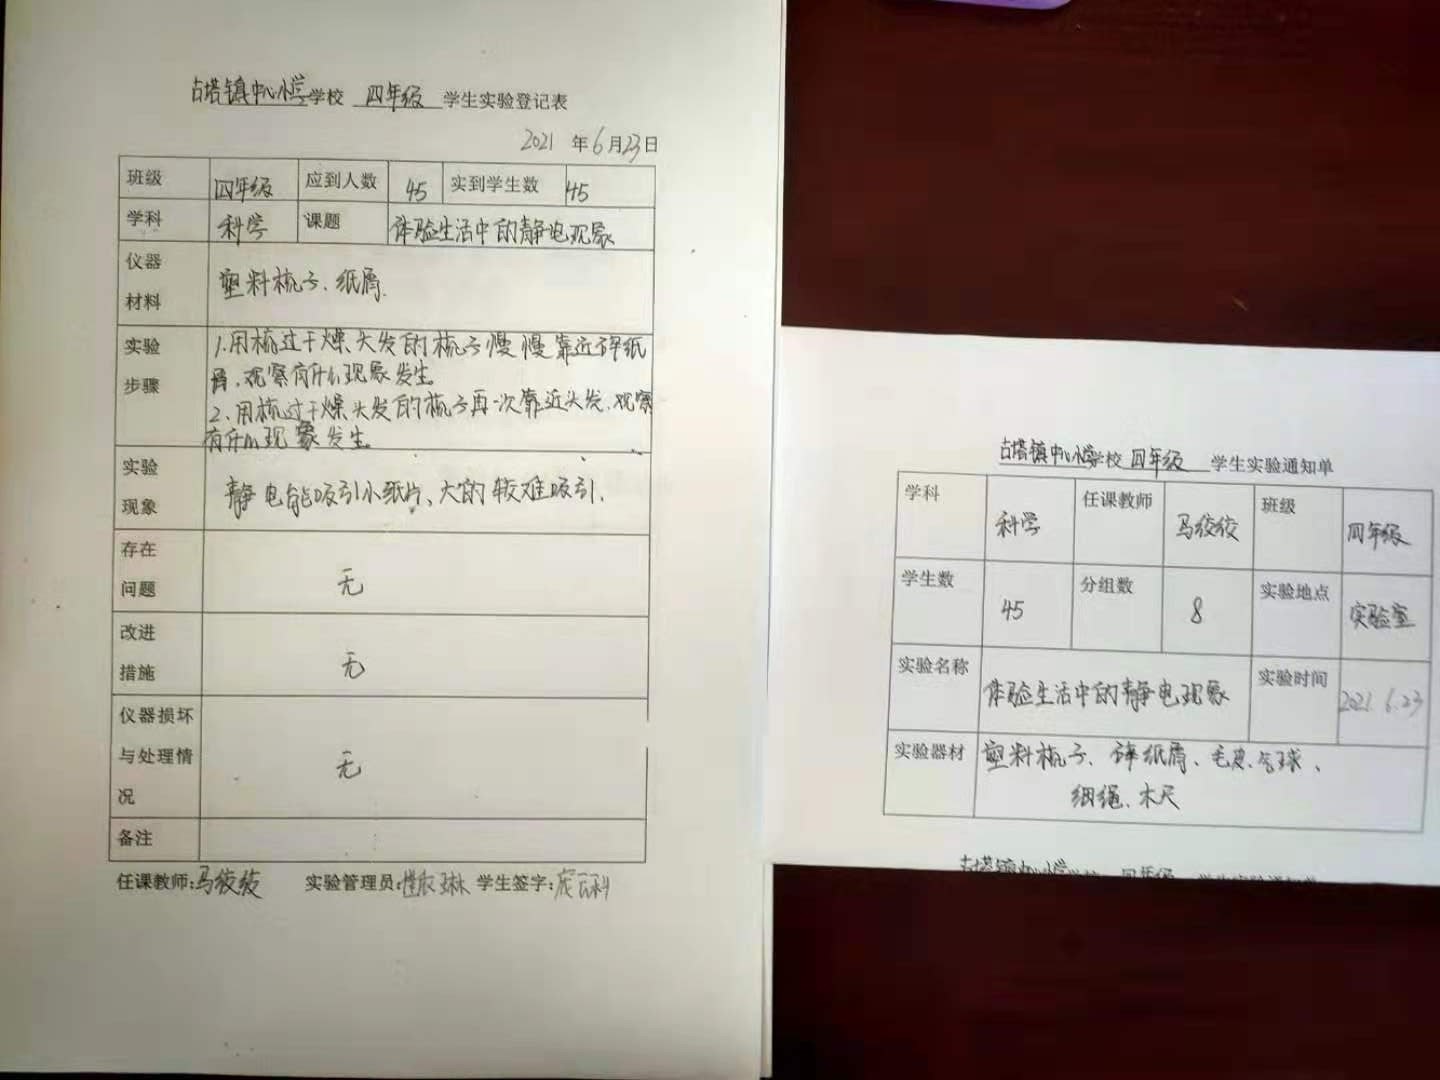 古塔镇中心小学学校 四年级 学生实验登记表
2021 年6月23日
班级 四年级 应到人数 45 实到学生数 45
学科 科学 课题 体验生活中的静电现象
仪器
材料
塑料梳子、纸屑.
实验
步骤
1.用梳过干燥头发的梳子慢慢靠近碎纸
屑,观察有什么现象发生。
2、用梳过干燥头发的梳子再一次靠近头发,观察
有什么现象发生。
实验
现象
静电能吸引小纸片、大的较难吸引.
存在
问题
无
改进
措施
无
仪器损坏
与处理情
况
无
备注
任课教师:马绞绞 实验管理员: 学生签字:
古塔镇中心小学学校 四年级 学生实验通知单
学科 科学 任课教师 马绞绞 班级 四年级
学生数 45 分组数 8 实验地点 实验室
实验名称 体验生活中的静电现象 实验时间 2021.6.23
实验器材 塑料梳子、碎纸屑、毛皮、气球、
细绳、木尺
古塔镇中心小学学校 四年级 学生实验通知单